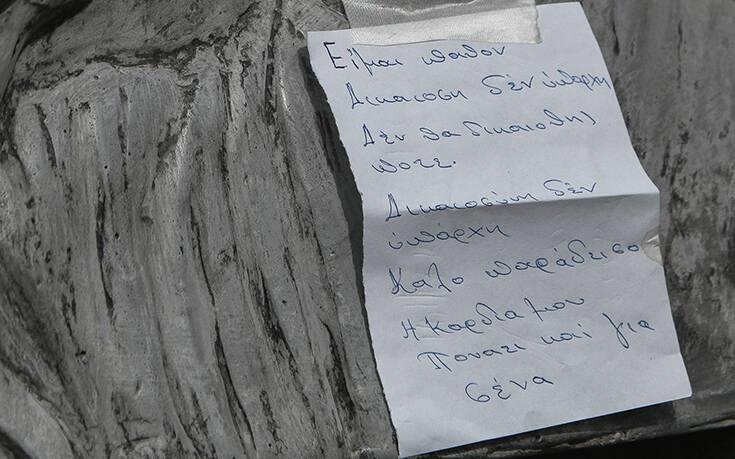 Είμαι παθον
Δικαιοση δέν ύπάρχη
Δέν θα δικαιοθης
ποτε.
Δικαιοσύνη δέν
ύπάρχη
Καλο παράδεισο
Η καρδια μου
Ποναει και για
σένα